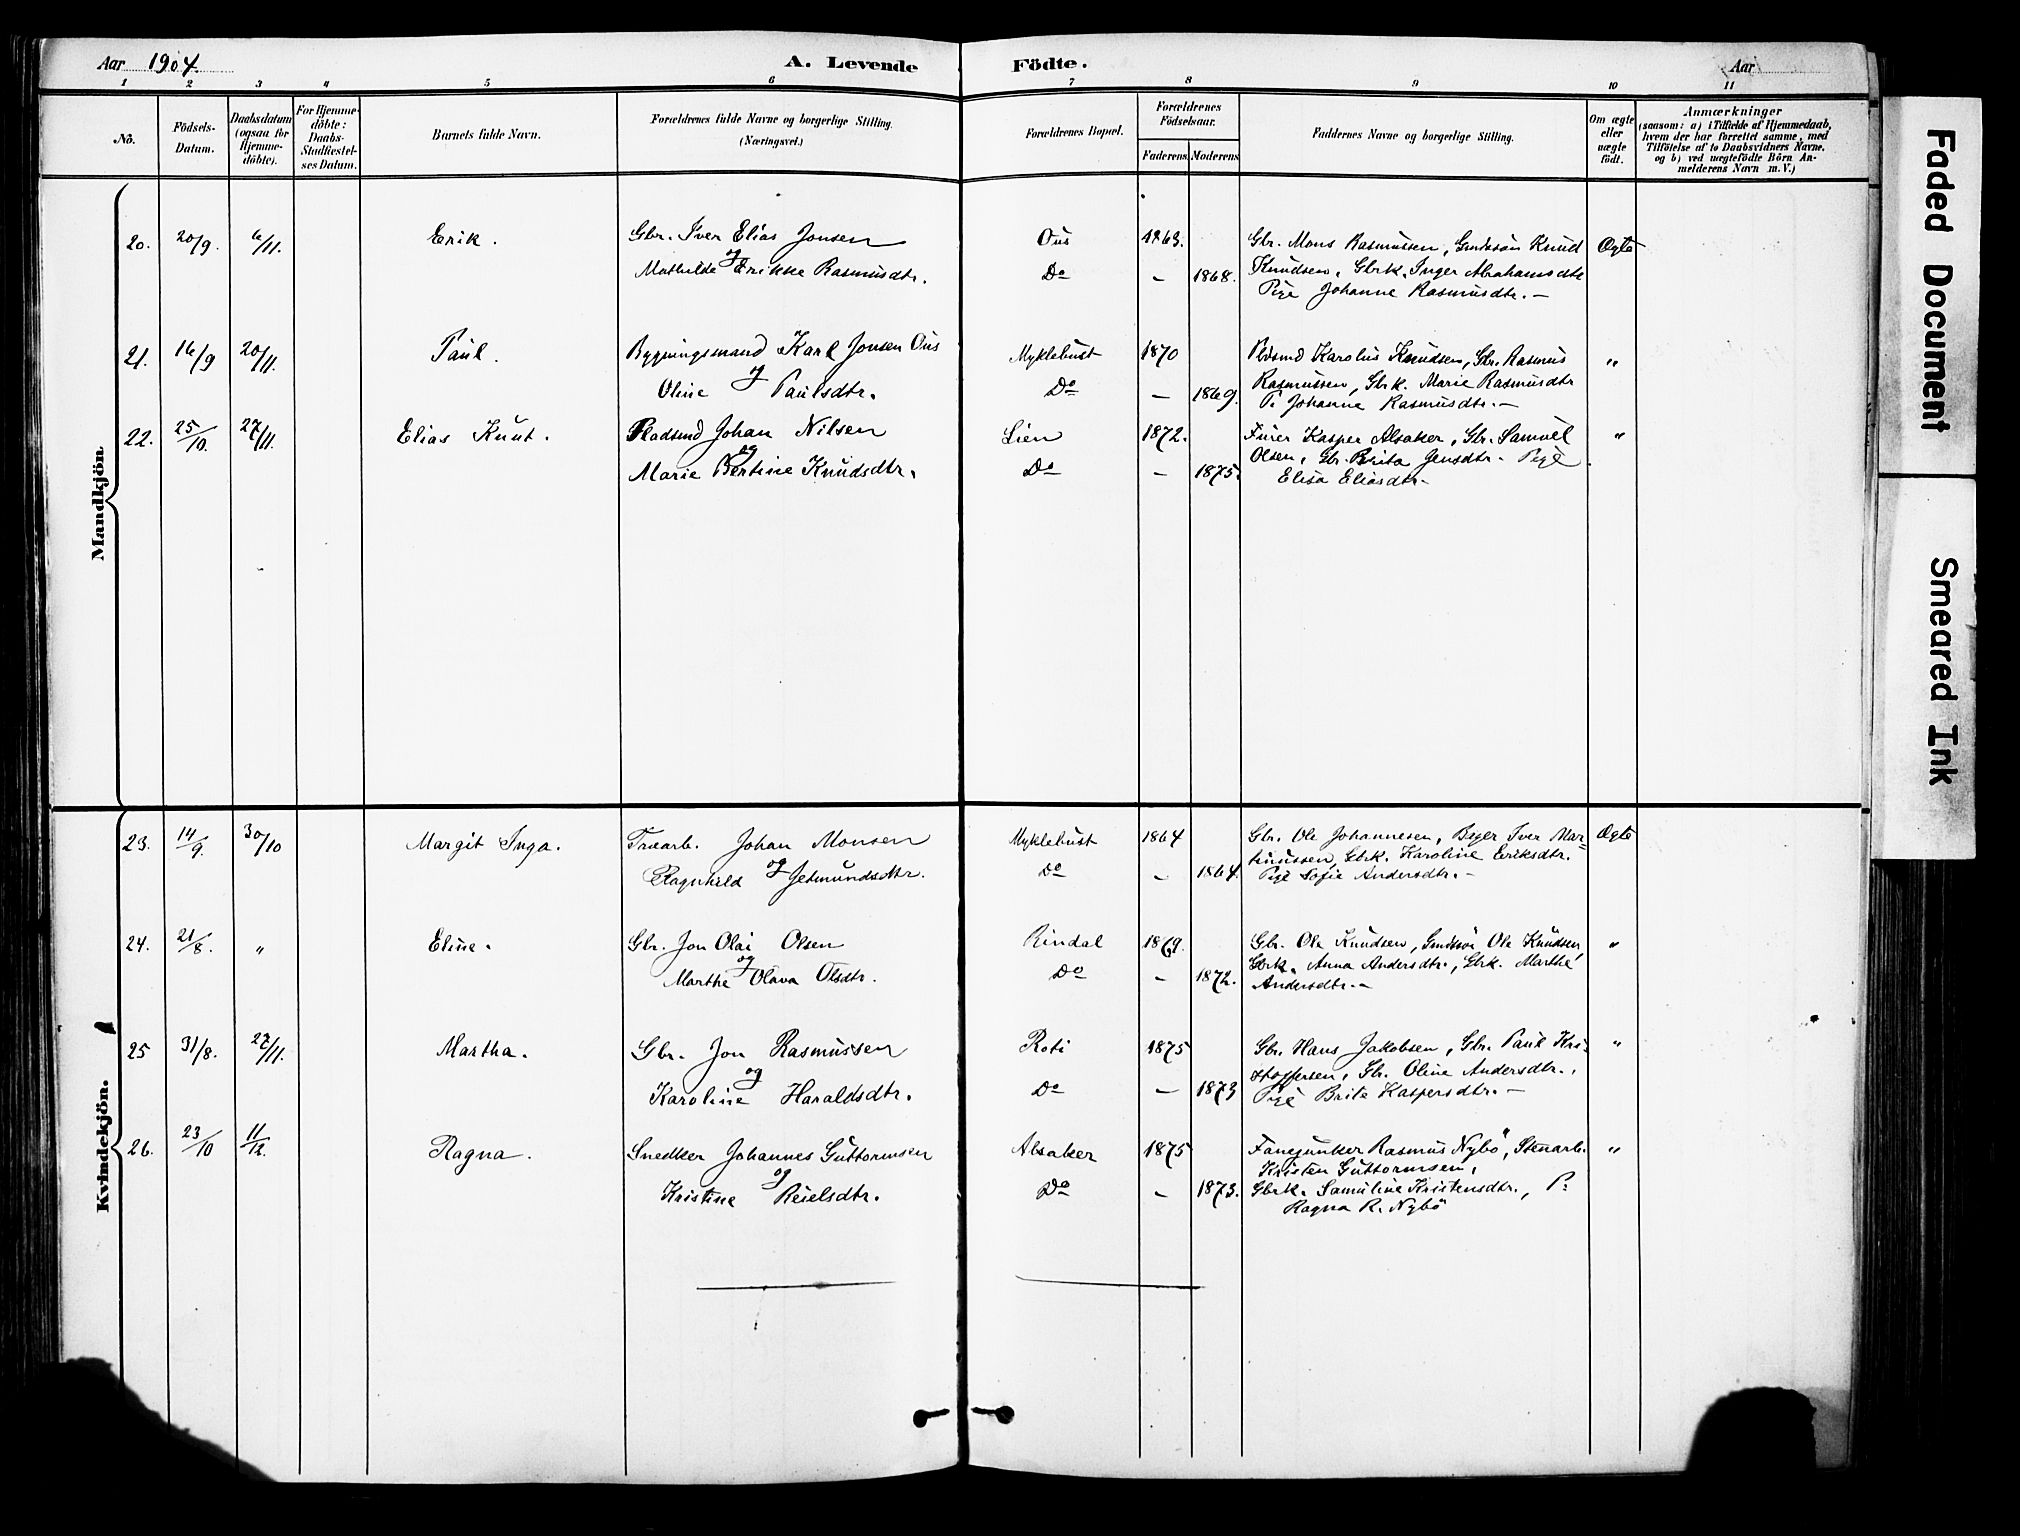 Aar 1904.
A. Levende Födte.
Aar
1 2 3 4 5 6 7 8 9 10 11
No.
Födsels-Datum.
Daabsdatum (ogsaa for Hjemme-döbte).
For Hjemme-döbte: Daabs-Stadfæstel-ses Datum.
Barnets fulde Navn.
Forældrenes fulde Navne og borgerlige Stilling. (Næringsvei.)
Forældrenes Bopæl.
Forældrenes Födselsaar.
Faderens. Moderens.
Faddernes Navne og borgerlige Stilling.
Om ægte eller uægte født.
Anmærkninger
(saasom: a) i Tilfælde af Hjemmedaab, hvem der har forrettet samme, med Tilföielse af to Daabsvidners Navne. og b) ved uægtefödte Börn An-melderens Navn m.V.)
Mandkjön.
20. 20/9. 6/11. Erik. Gbr. Iver Elias Jonsen Ous 1863. Gbr. Mons Rasmussen, Gmdssön Knud Ægte
og
Mathilde Erikke Rasmusdtr. Do – 1868. Knudsen, Gbrk. Inger Abrahamsdtr
Pige Johanne Rasmusdtr. –
21. 16/9 20/11. Paul. Bygningsmand Karl Jonsen Ous Myklebust 1870 Pldsmd Karolus Knudsen, Gbr. Rasmus „
og
Oline Paulsdtr. Do – 1869. Rasmussen, Gbrk. Marie Rasmusdtr
P: Johanne Rasmusdtr. –
22. 25/10. 27/11. Elias Knut. Pladsmd Johan Nilsen Lien 1872. Furer Kasper Alsaker, Gbr. Samuel „
og
Marie Bertine Knudsdtr. Do – 1875. Olsen, Gbr. Brita Jensdtr. Pige
Elisa Eliasdtr –
Kvindekjön.
23. 14/9. 30/10 Margit Inga. Træarb. Johan Monsen Myklebust 1864 Gbr. Ole Johannesen, Bager Iver Mar- Ægte
og
Ragnhild Jetmundsdtr. Do – 1864. tinussen, Gbrk. Karoline Eriksdtr.
Pige Sofie Andersdtr. –
24. 21/8. „ Eline. Gbr. Jon Olai Olsen Rindal 1869. Gbr. Ole Knudsen, Gmdssön Ole Knudsen „
og
Marthe Olava Olsdtr. Do – 1872. Gbrk. Anna Andersdtr., Gbrk. Marthe
Andersdtr. –
25 31/8. 27/11. Martha. Gbr. Jon Rasmussen Roti 1875 Gbr. Hans Jakobsen, Gbr. Paul Kri- „
og
Karoline Haraldsdtr. Do – 1873 stoffersen, Gbr. Oline Andersdtr.,
Pige Brite Kaspersdtr. –
26. 23/10 11/12. Ragna. Snedker Johannes Guttormsen Alsaker 1875 Fanejunker Rasmus Nybö, Stenarb. „
og
Kristen Guttormsen,
Kristine Reielsdtr. Do – 1873. Gbrk. Samuline Kristensdtr., P:
Ragna R. Nybö
Faded Document
Smeared Ink